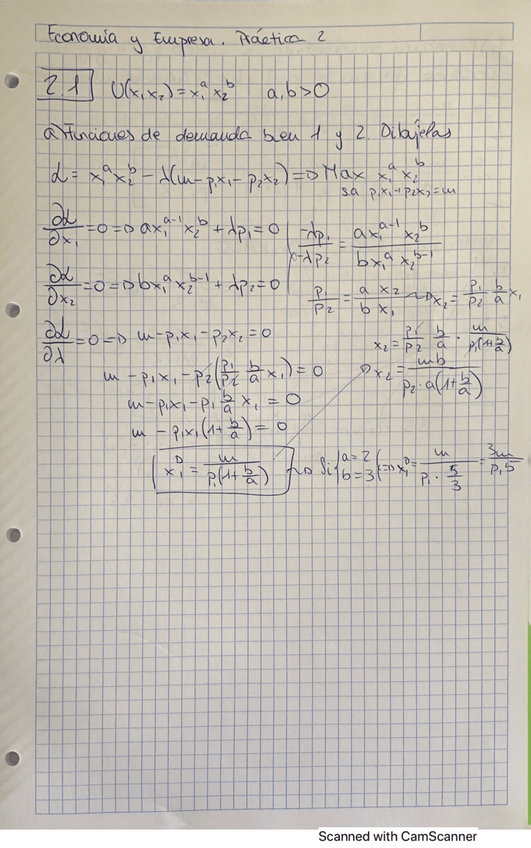 Economía y Empresa. Práctica 2
2.1 U(x₁x₂) = x₁ᵃ x₂ᵇ a,b>0
a) Funciones de demanda bien 1 y 2. Dibújelas
L = x₁ᵃx₂ᵇ − λ(m−p₁x₁−p₂x₂) =D Max x₁ᵃ x₂ᵇ
s.a p₁x₁+p₂x₂=m
∂L/∂x₁ = 0 =D ax₁ᵃ⁻¹x₂ᵇ + λp₁ = 0
∂L/∂x₂ = 0 =D bx₁ᵃx₂ᵇ⁻¹ + λp₂ = 0
−λp₁/−λp₂ = ax₁ᵃ⁻¹x₂ᵇ/bx₁ᵃx₂ᵇ⁻¹
p₁/p₂ = a x₂/b x₁ ~D x₂ = p₁/p₂ b/a x₁
∂L/∂λ = 0 =D m−p₁x₁−p₂x₂ = 0
m − p₁x₁ − p₂(p₁/p₂ b/a x₁) = 0
m−p₁x₁−p₁ b/a x₁ = 0
m − p₁x₁(1+b/a) = 0
x₂ = p₁/p₂ b/a · m/p₁(1+b/a)
D x₂ = mb/p₂·a(1+b/a)
x₁ᴰ = m/p₁(1+b/a) ~D Si {a=2 b=3} =D x₁ᴰ = m/p₁·5/3 = 3m/p₁5
Scanned with CamScanner